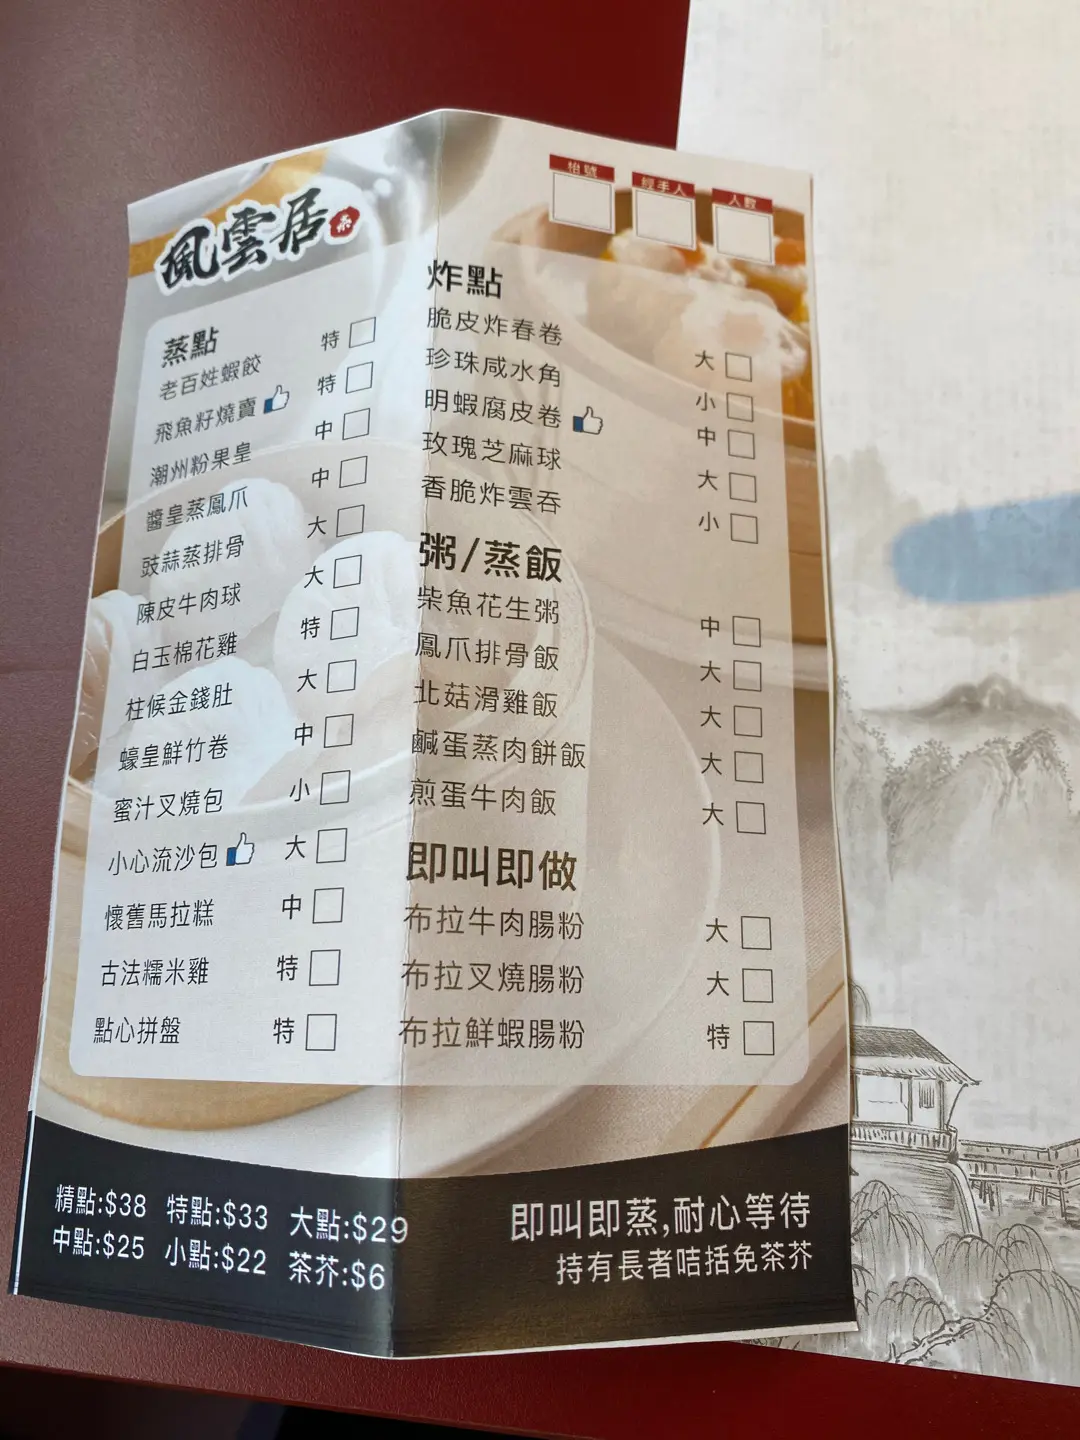 風雲居
茶
枱號
經手人
人數
蒸點
老百姓蝦餃 特
飛魚籽燒賣 特
潮州粉果皇 中
醬皇蒸鳳爪 中
豉蒜蒸排骨 大
陳皮牛肉球 大
白玉棉花雞 特
柱候金錢肚 大
蠔皇鮮竹卷 中
蜜汁叉燒包 小
小心流沙包 大
懷舊馬拉糕 中
古法糯米雞 特
點心拼盤 特
炸點
脆皮炸春卷 大
珍珠咸水角 小
明蝦腐皮卷 中
玫瑰芝麻球 大
香脆炸雲吞 小
粥/蒸飯
柴魚花生粥 中
鳳爪排骨飯 大
北菇滑雞飯 大
鹹蛋蒸肉餅飯 大
煎蛋牛肉飯 大
即叫即做
布拉牛肉腸粉 大
布拉叉燒腸粉 大
布拉鮮蝦腸粉 特
精點:$38 特點:$33 大點:$29
中點:$25 小點:$22 茶芥:$6
即叫即蒸,耐心等待
持有長者咭括免茶芥